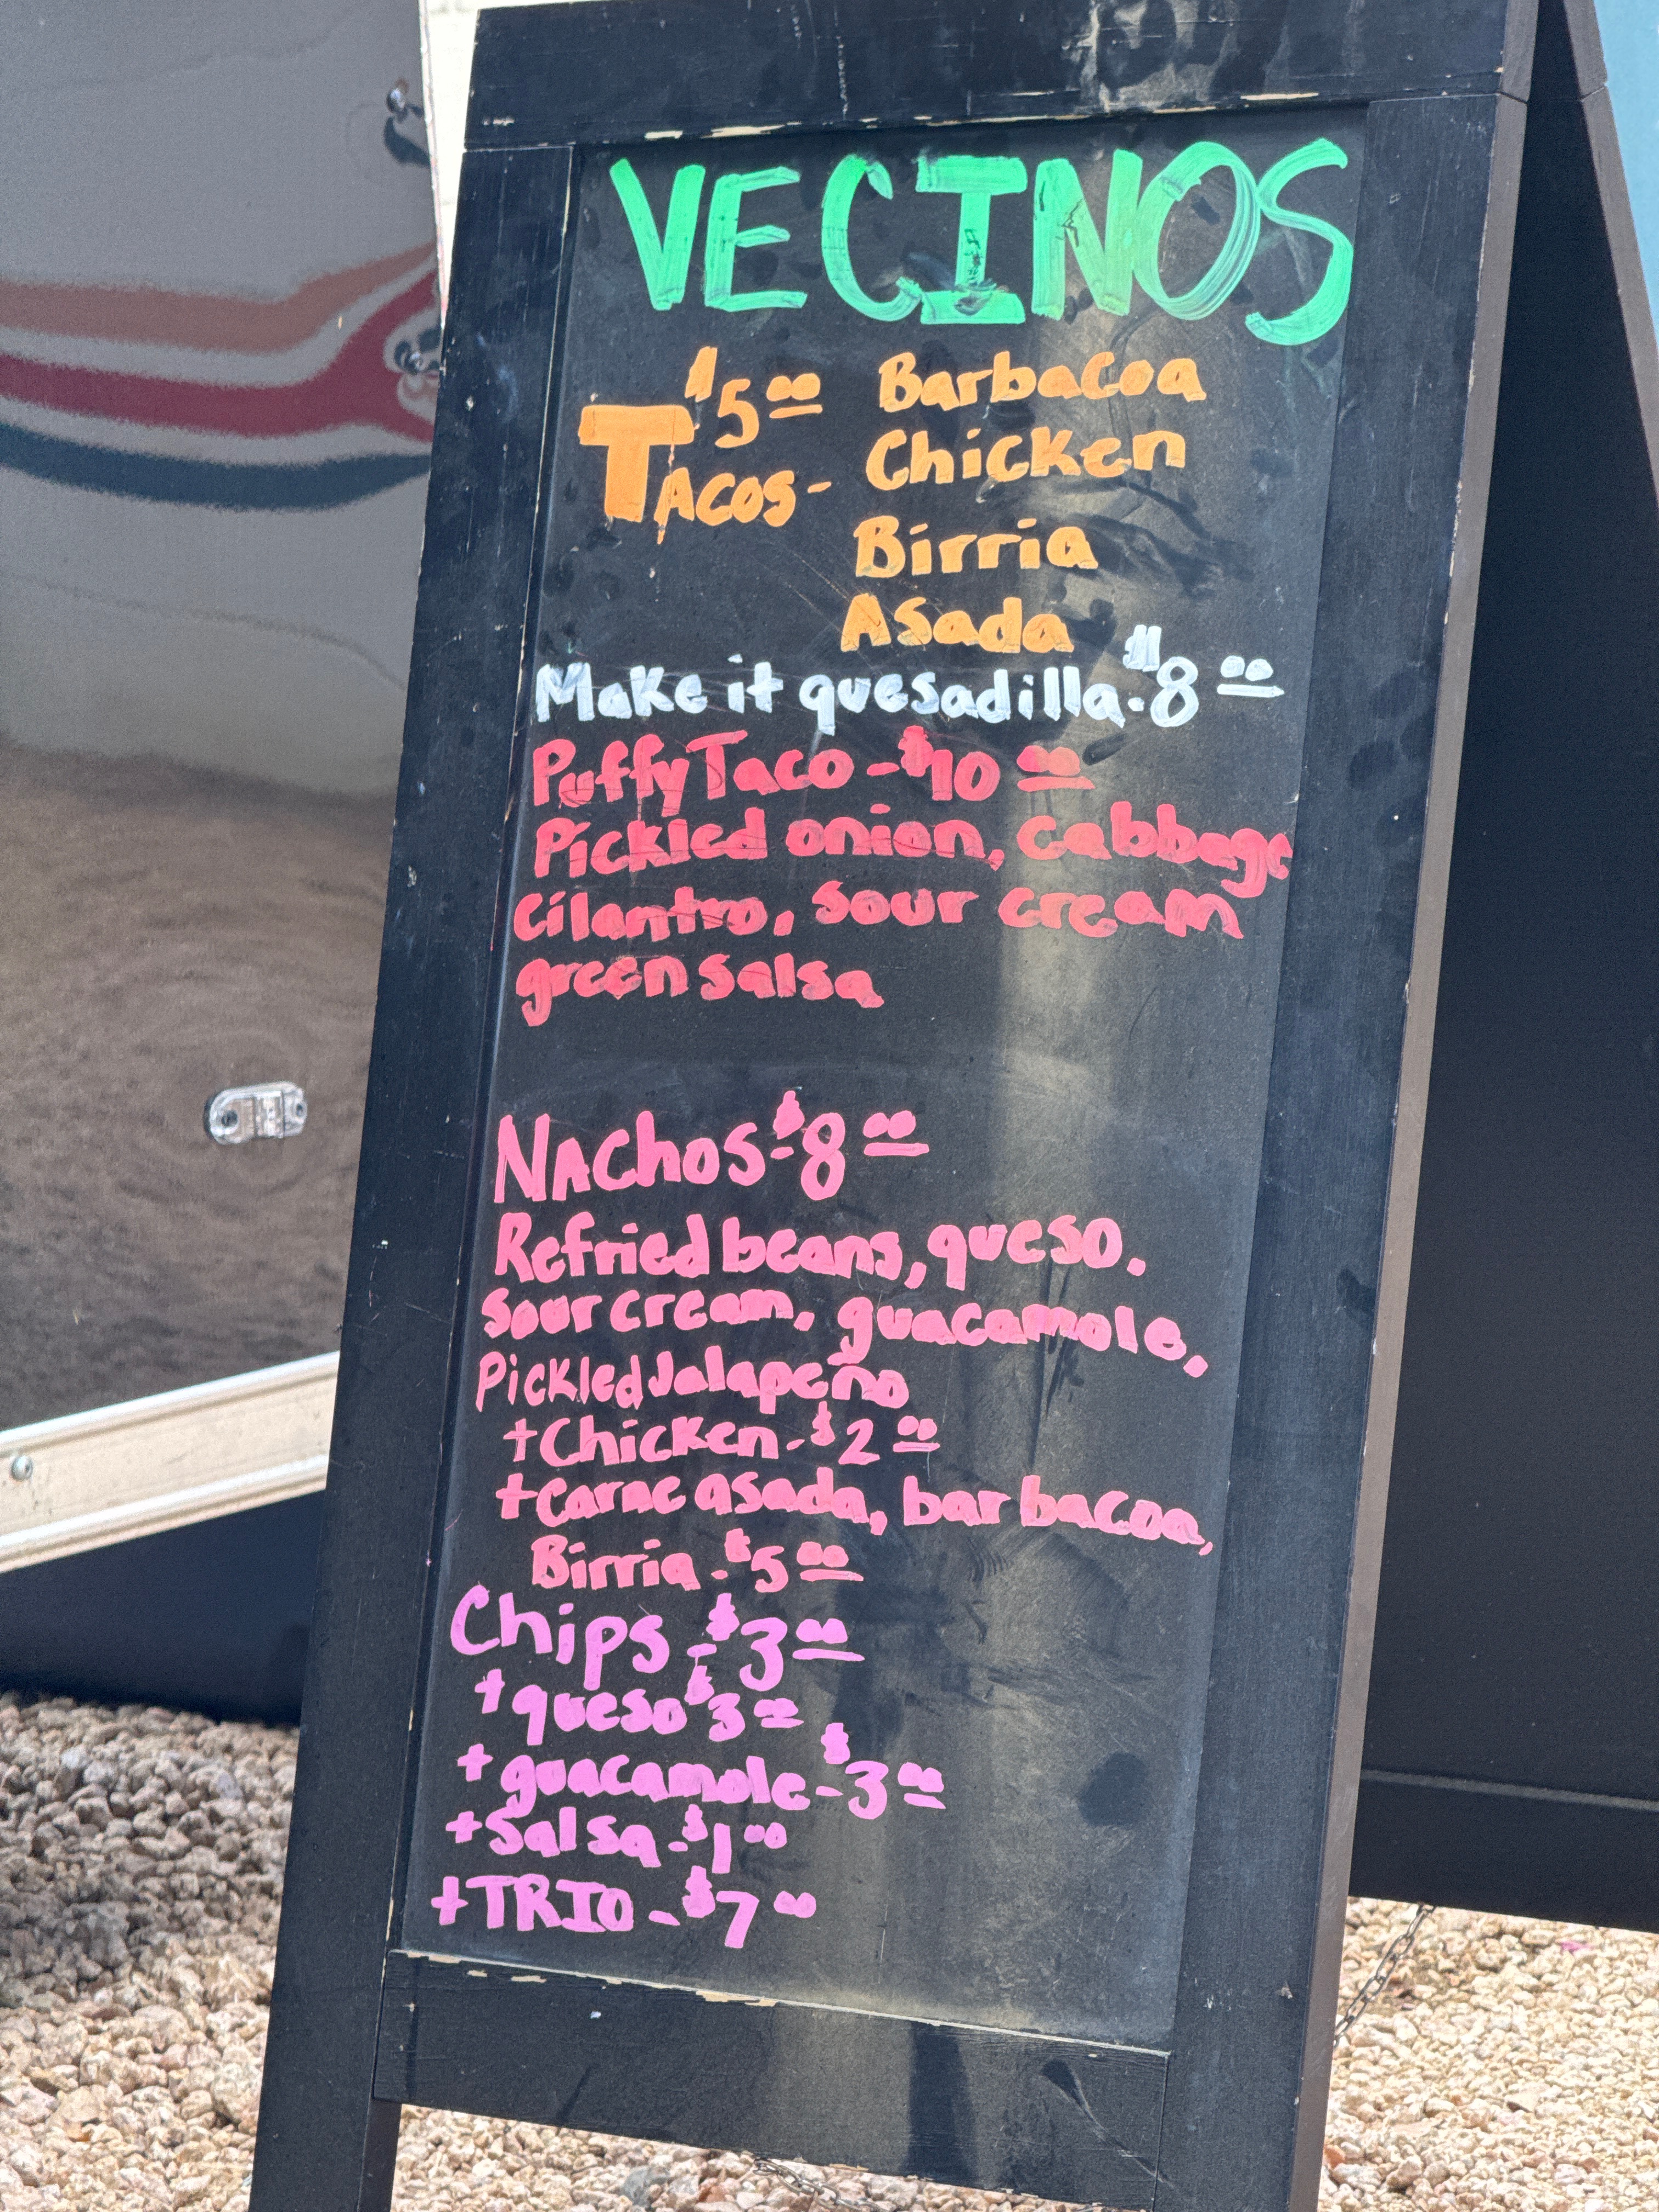 VECINOS
$5.00 Barbacoa
TACOS- Chicken
Birria
Asada
Make it quesadilla-$8.00
Puffy Taco-$10.00
Pickled onion, cabbage
cilantro, sour cream
green salsa
NAChOS-$8.00
Refried beans, queso.
sour cream, guacamole,
Pickled Jalapeño
+Chicken-$2.00
+carne asada, barbacoa,
Birria-$5.00
Chips-$3.00
+queso $3.00
+guacamole-$3.00
+Salsa-$1.00
+TRIO-$7.00